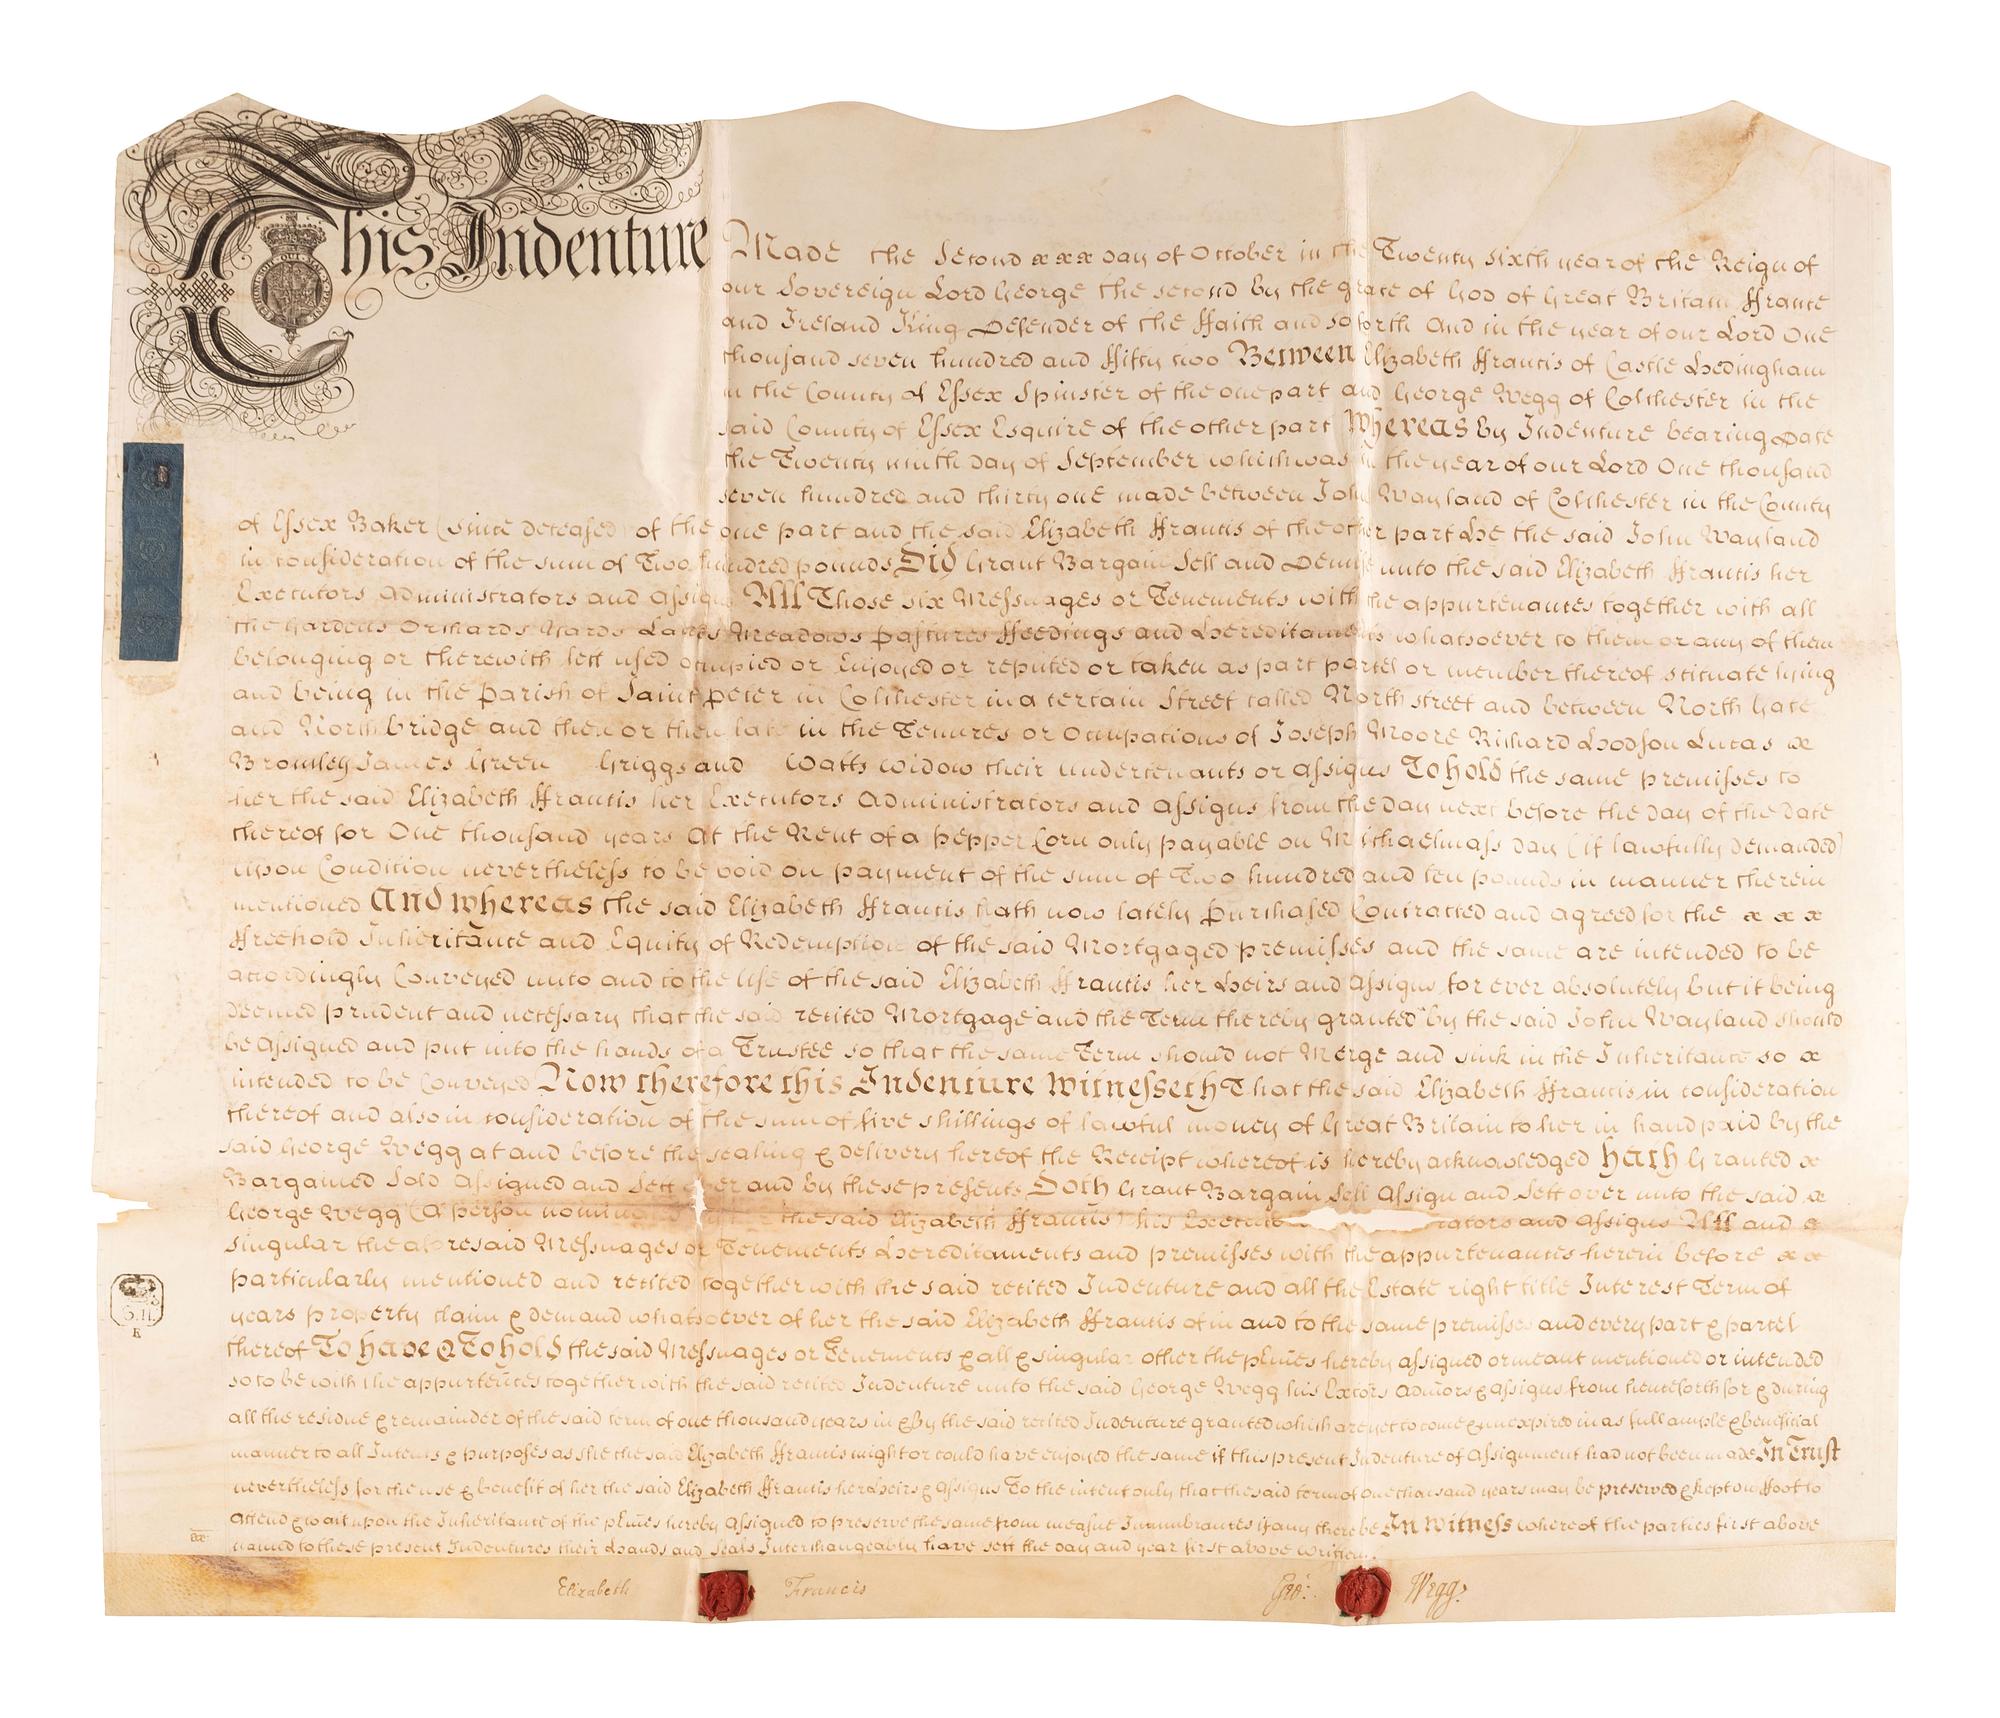 This Indenture Made the Second x x x day of October in the Twenty sixth year of the Reign of
our Sovereign Lord George the second by the grace of God of Great Britain ffrance
and Ireland King Defender of the ffaith and so forth And in the year of our Lord One
thousand seven hundred and ffifty two Between Elizabeth ffrancis of Castle Hedingham
in the County of Essex Spinster of the one part and George Wegg of Colchester in the
said County of Essex Esquire of the other part Whereas by Indenture bearing Date
the Twenty ninth day of September which was in the year of our Lord One thousand
seven hundred and thirty one made between John Wayland of Colchester in the County
of Essex Baker (since deceased) of the one part and the said Elizabeth ffrancis of the other part He the said John Wayland
in consideration of the sum of Two hundred pounds Did Grant Bargain Sell and Demise unto the said Elizabeth ffrancis her
Executors Administrators and Assigns All Those six Messuages or Tenements with the appurtenances together with all
the Gardens Orchards Yards Lands Meadows pastures ffeedings and Hereditaments whatsoever to them or any of them
belonging or therewith lett used occupied or Enjoyed or reputed or taken as part parcel or member thereof scituate lying
and being in the parish of Saint peter in Colchester in a certain Street called North street and between North Gate
and North bridge and then or then late in the Tenures or Occupations of Joseph Moore Richard Hodson Lucas x
Bromley James Green Griggs and Watts widow their undertenants or assigns To hold the same premisses to
her the said Elizabeth ffrancis her Executors Administrators and Assigns from the day next before the day of the date
thereof for One thousand years At the Rent of a pepper Corn only payable on Michaelmass day (if lawfully demanded)
upon Condition nevertheless to be void on payment of the sum of Two hundred and ten pounds in manner therein
mentioned And whereas the said Elizabeth ffrancis hath now lately purchased Contracted and agreed for the x x x
ffreehold Inheritance and Equity of Redemption of the said Mortgaged premisses and the same are intended to be
accordingly Conveyed unto and to the use of the said Elizabeth ffrancis her Heirs and Assigns for ever absolutely but it being
deemed prudent and necessary that the said recited Mortgage and the Term thereby granted by the said John Wayland should
be Assigned and put into the hands of a Trustee so that the same Term should not Merge and sink in the Inheritance so x
intended to be Conveyed Now therefore this Indenture Witnesseth That the said Elizabeth ffrancis in consideration
thereof and also in consideration of the sum of five shillings of lawful money of Great Britain to her in hand paid by the
said George Wegg at and before the sealing & delivery hereof the Receipt whereof is hereby acknowledged Hath Granted x
Bargained Sold Assigned and Sett over and by these presents Doth Grant Bargain Sell Assign and Sett over unto the said x
George Wegg (A person nominated the said Elizabeth ffrancis) his and Assigns All and x
singular the aforesaid Messuages or Tenements Hereditaments and premisses with the appurtenances herein before x x
particularly mentioned and recited together with the said recited Indenture and all the Estate right title Interest Term of
years property claim & demand whatsoever of her the said Elizabeth ffrancis of in and to the same premisses and every part & parcel
thereof To have & To hold the said Messuages or Tenements & all & singular other the pmes hereby assigned or meant mentioned or intended
so to be with the appurtences together with the said recited Indenture unto the said George Wegg his Exctors Admors & Assigns from henceforth for & during
all the residue & remainder of the said term of one thousand years in & by the said recited Indenture granted which are yet to come & unexpired in as full ample & beneficial
manner to all Intents & purposes as she the said Elizabeth ffrancis might or could have enjoyed the same if this present Indenture of Assignment had not been made In Trust
nevertheless for the use & benefit of her the said Elizabeth ffrancis her Heirs & Assigns To the intent only that the said term of one thousand years may be preserved & kept on ffoot to
attend & wait upon the Inheritance of the pmes hereby Assigned to preserve the same from measne Incumbrances if any there be In Witness whereof the parties first above
named to these present Indentures their Hands and Seals Interchangeably have sett the day and year first above written.
Elizabeth Francis Geo: Wegg